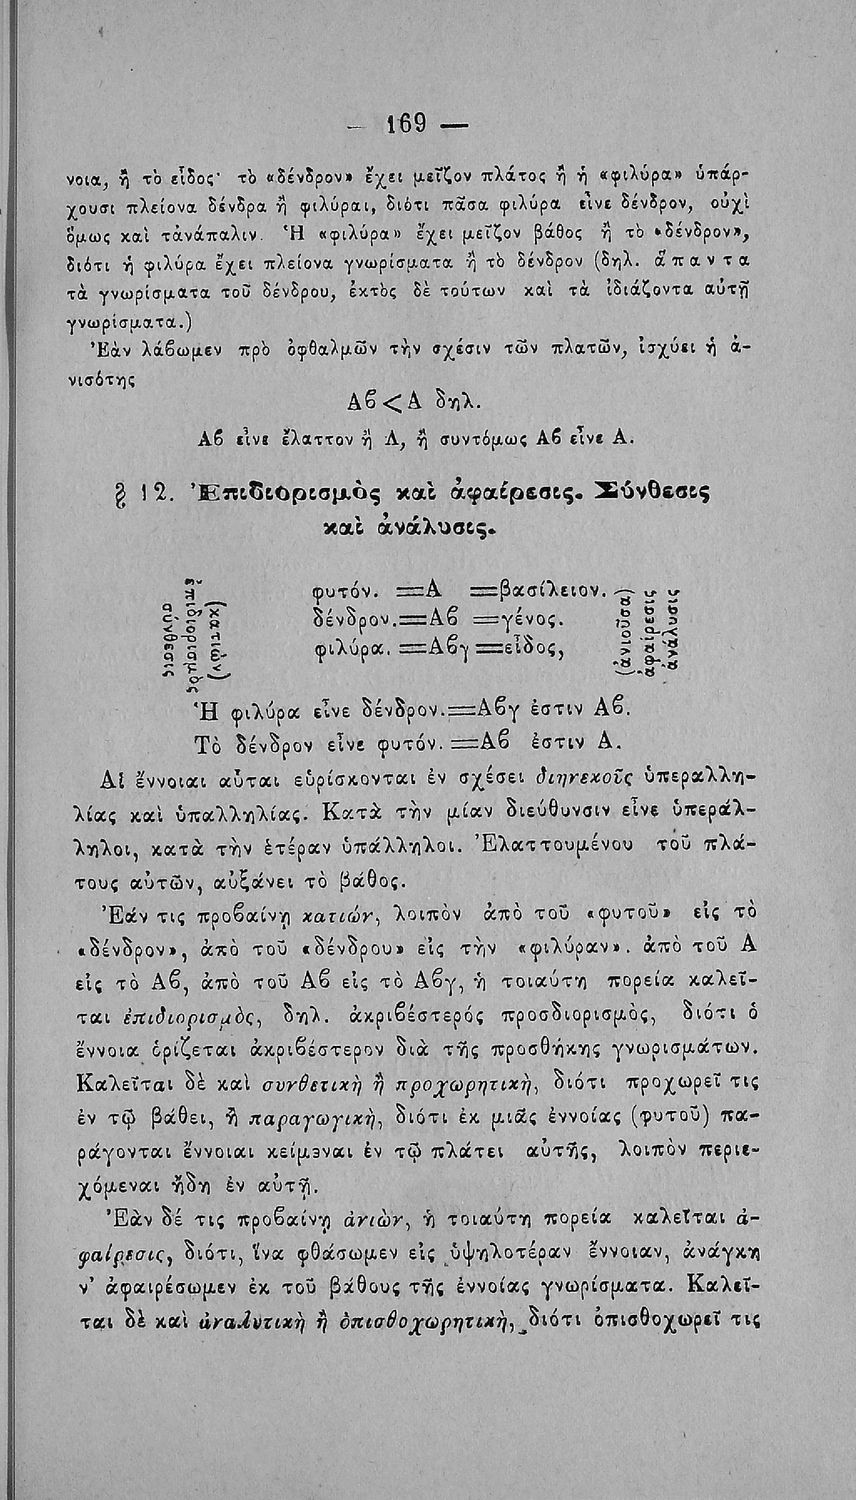 — 169 —
νοια, ἢ τὸ εἶδος· τὸ «δένδρον» ἔχει μεῖζον πλάτος ἢ ἡ «φιλύρα» ὑπάρ-
χουσι πλείονα δένδρα ἢ φιλύραι, διότι πᾶσα φιλύρα εἶνε δένδρον, οὐχὶ
ὅμως καὶ τἀνάπαλιν. Ἡ «φιλύρα» ἔχει μεῖζον βάθος ἢ τὸ «δένδρον»,
διότι ἡ φιλύρα ἔχει πλείονα γνωρίσματα ἢ τὸ δένδρον (δηλ. ἅπαντα
τὰ γνωρίσματα τοῦ δένδρου, ἐκτὸς δὲ τούτων καὶ τὰ ἰδιάζοντα αὐτῇ
γνωρίσματα.)
Ἐὰν λάβωμεν πρὸ ὀφθαλμῶν τὴν σχέσιν τῶν πλατῶν, ἰσχύει ἡ ἀ-
νισότης
Αϐ < Α δηλ.
Αϐ εἶνε ἔλαττον ἢ Α, ἢ συντόμως Αϐ εἶνε Α.
§ 12. Ἐπιδιορισμὸς καὶ ἀφαίρεσις. Σύνθεσις
καὶ ἀνάλυσις.
σύνθεσις
ἐπιδιορισμὸς
(κατιὼν)
φυτόν. =Α =βασίλειον.
δένδρον.=Αϐ =γένος.
φιλύρα. =Αϐγ =εἶδος,
(ἀνιοῦσα)
ἀφαίρεσις
ἀνάλυσις
Ἡ φιλύρα εἶνε δένδρον.=Αϐγ ἐστιν Αϐ.
Τὸ δένδρον εἶνε φυτόν. =Αϐ ἐστιν Α.
Αἱ ἔννοιαι αὗται εὑρίσκονται ἐν σχέσει διηνεκοῦς ὑπεραλλη-
λίας καὶ ὑπαλληλίας. Κατὰ τὴν μίαν διεύθυνσιν εἶνε ὑπεράλ-
ληλοι, κατὰ τὴν ἑτέραν ὑπάλληλοι. Ἐλαττουμένου τοῦ πλά-
τους αὐτῶν, αὐξάνει τὸ βάθος.
Ἐάν τις προβαίνῃ κατιών, λοιπὸν ἀπὸ τοῦ «φυτοῦ» εἰς τὸ
«δένδρον», ἀπὸ τοῦ «δένδρου» εἰς τὴν «φιλύραν». ἀπὸ τοῦ Α
εἰς τὸ Αϐ, ἀπὸ τοῦ Αϐ εἰς τὸ Αϐγ, ἡ τοιαύτη πορεία καλεῖ-
ται ἐπιδιορισμὸς, δηλ. ἀκριβέστερός προσδιορισμὸς, διότι ὁ
ἔννοια ὁρίζεται ἀκριβέστερον διὰ τῆς προσθήκης γνωρισμάτων.
Καλεῖται δὲ καὶ συνθετικὴ ἢ προχωρητικὴ, διότι προχωρεῖ τις
ἐν τῷ βάθει, ἢ παραγωγικὴ, διότι ἐκ μιᾶς ἐννοίας (φυτοῦ) πα-
ράγονται ἔννοιαι κείμεναι ἐν τῷ πλάτει αὐτῆς, λοιπὸν περιε-
χόμεναι ἤδη ἐν αὐτῇ.
Ἐὰν δέ τις προβαίνῃ ἀνιὼν, ἡ τοιαύτη πορεία καλεῖται ἀ-
φαίρεσις, διότι, ἵνα φθάσωμεν εἰς ὑψηλοτέραν ἔννοιαν, ἀνάγκη
ν' ἀφαιρέσωμεν ἐκ τοῦ βάθους τῆς ἐννοίας γνωρίσματα. Καλεῖ-
ται δὲ καὶ ἀναλυτικὴ ἢ ὀπισθοχωρητικὴ, διότι ὀπισθοχωρεῖ τις